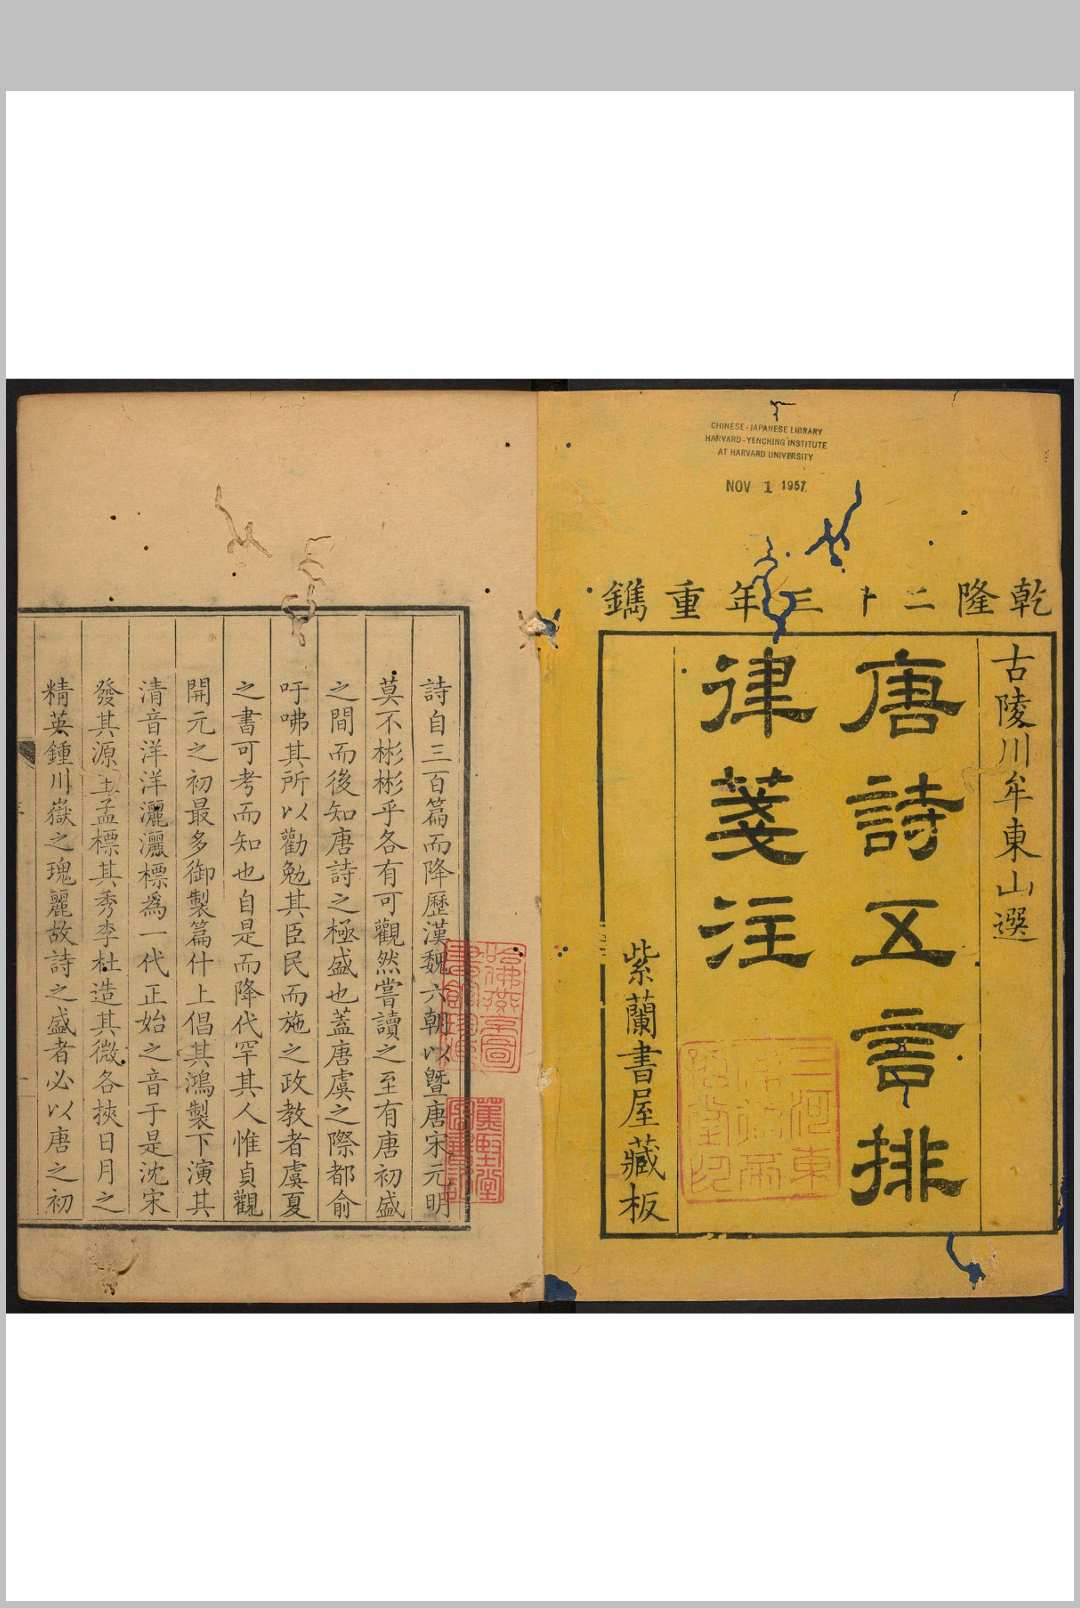 CHINESE-JAPANESE LIBRARY
HARVARD-YENCHING INSTITUTE
AT HARVARD UNIVERSITY
NOV 1 1957
乾隆二十三年重鐫
古陵川牟東山選
唐詩五言排
律箋注
紫蘭書屋藏板
詩自三百篇而降歷漢魏六朝以曁唐宋元明
莫不彬彬乎各有可觀然嘗讀之至有唐初盛
之間而後知唐詩之極盛也蓋唐虞之際都俞
吁咈其所以勸勉其臣民而施之政教者虞夏
之書可考而知也自是而降代罕其人惟貞觀
開元之初最多御製篇什上倡其鴻製下演其
清音洋洋灑灑標爲一代正始之音于是沈宋
發其源王孟標其秀李杜造其微各挾日月之
精英鍾川嶽之瑰麗故詩之盛者必以唐之初